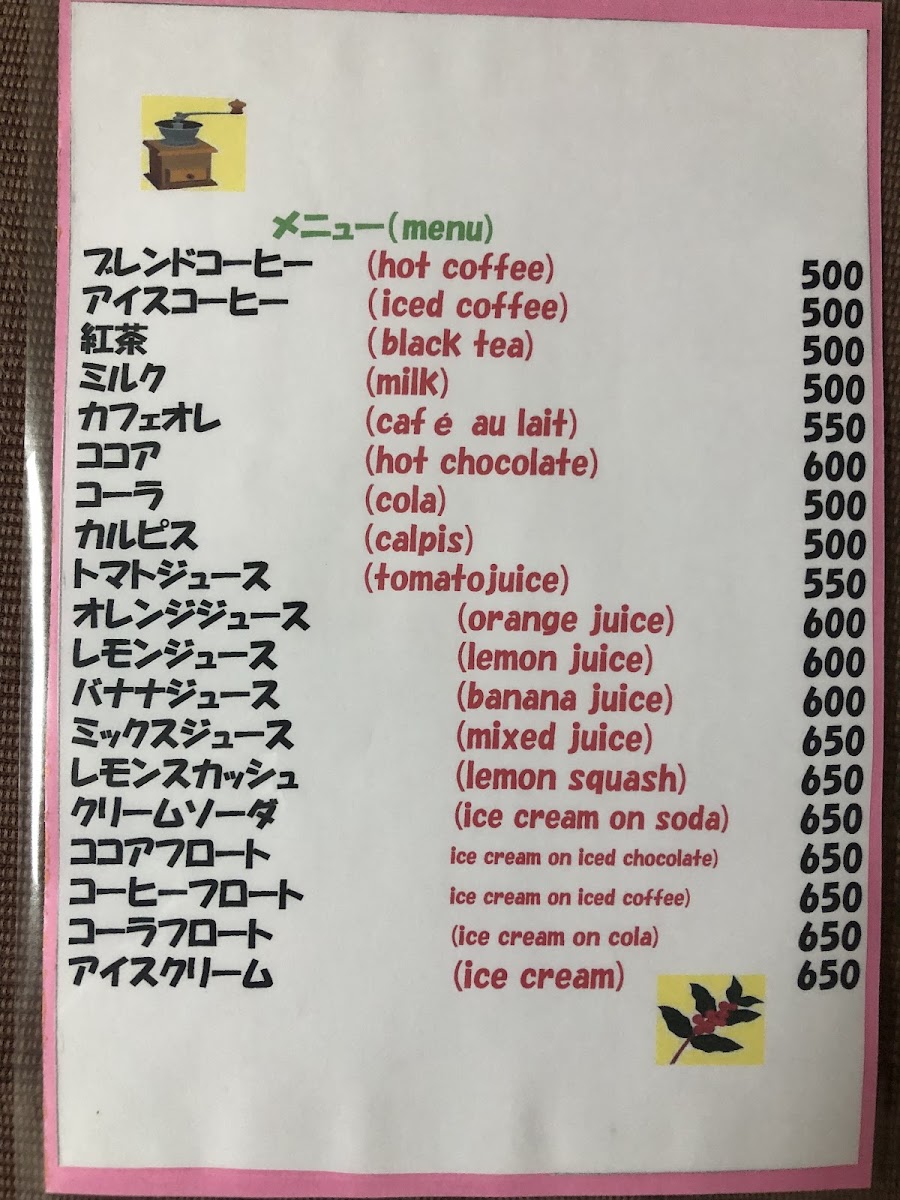 メニュー(menu)
ブレンドコーヒー (hot coffee) 500
アイスコーヒー (iced coffee) 500
紅茶 (black tea) 500
ミルク (milk) 500
カフェオレ (café au lait) 550
ココア (hot chocolate) 600
コーラ (cola) 500
カルピス (calpis) 500
トマトジュース (tomatojuice) 550
オレンジジュース (orange juice) 600
レモンジュース (lemon juice) 600
バナナジュース (banana juice) 600
ミックスジュース (mixed juice) 650
レモンスカッシュ (lemon squash) 650
クリームソーダ (ice cream on soda) 650
ココアフロート ice cream on iced chocolate) 650
コーヒーフロート ice cream on iced coffee) 650
コーラフロート (ice cream on cola) 650
アイスクリーム (ice cream) 650